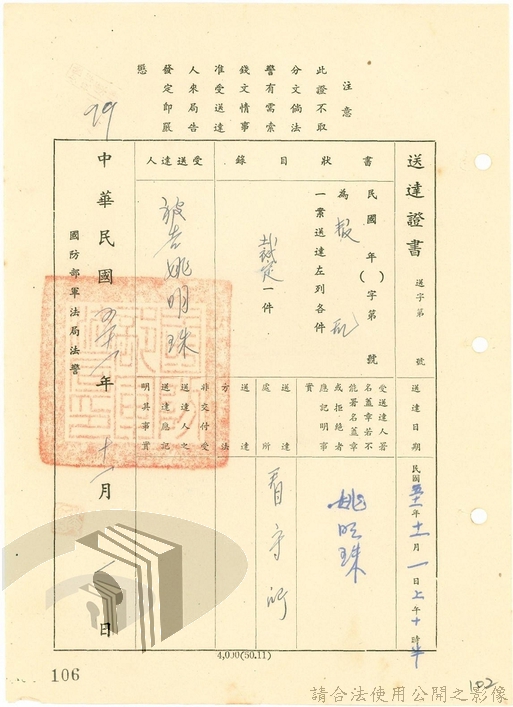 注意
此證不取
分文倘法
警有需索
錢文情事
准受送達
人來局告
發定即嚴
懲
送達證書
送字第 號
書狀目錄
民國 年( )字第 號
為叛亂
一案送達左列各件
裁定一件
受送達人
被告姚明珠
送達日期
民國五十一年十一月一日上午十時半
受送達人署名蓋章若不能署名蓋章或拒絕者應記明事實
姚明珠
送達處所
看守所
送達方法
非交付受送達人之送達應記明其事實
中華民國五十一年十一月一日
國防部軍法局法警
4,000(50.11)
106
182
請合法使用公開之影像